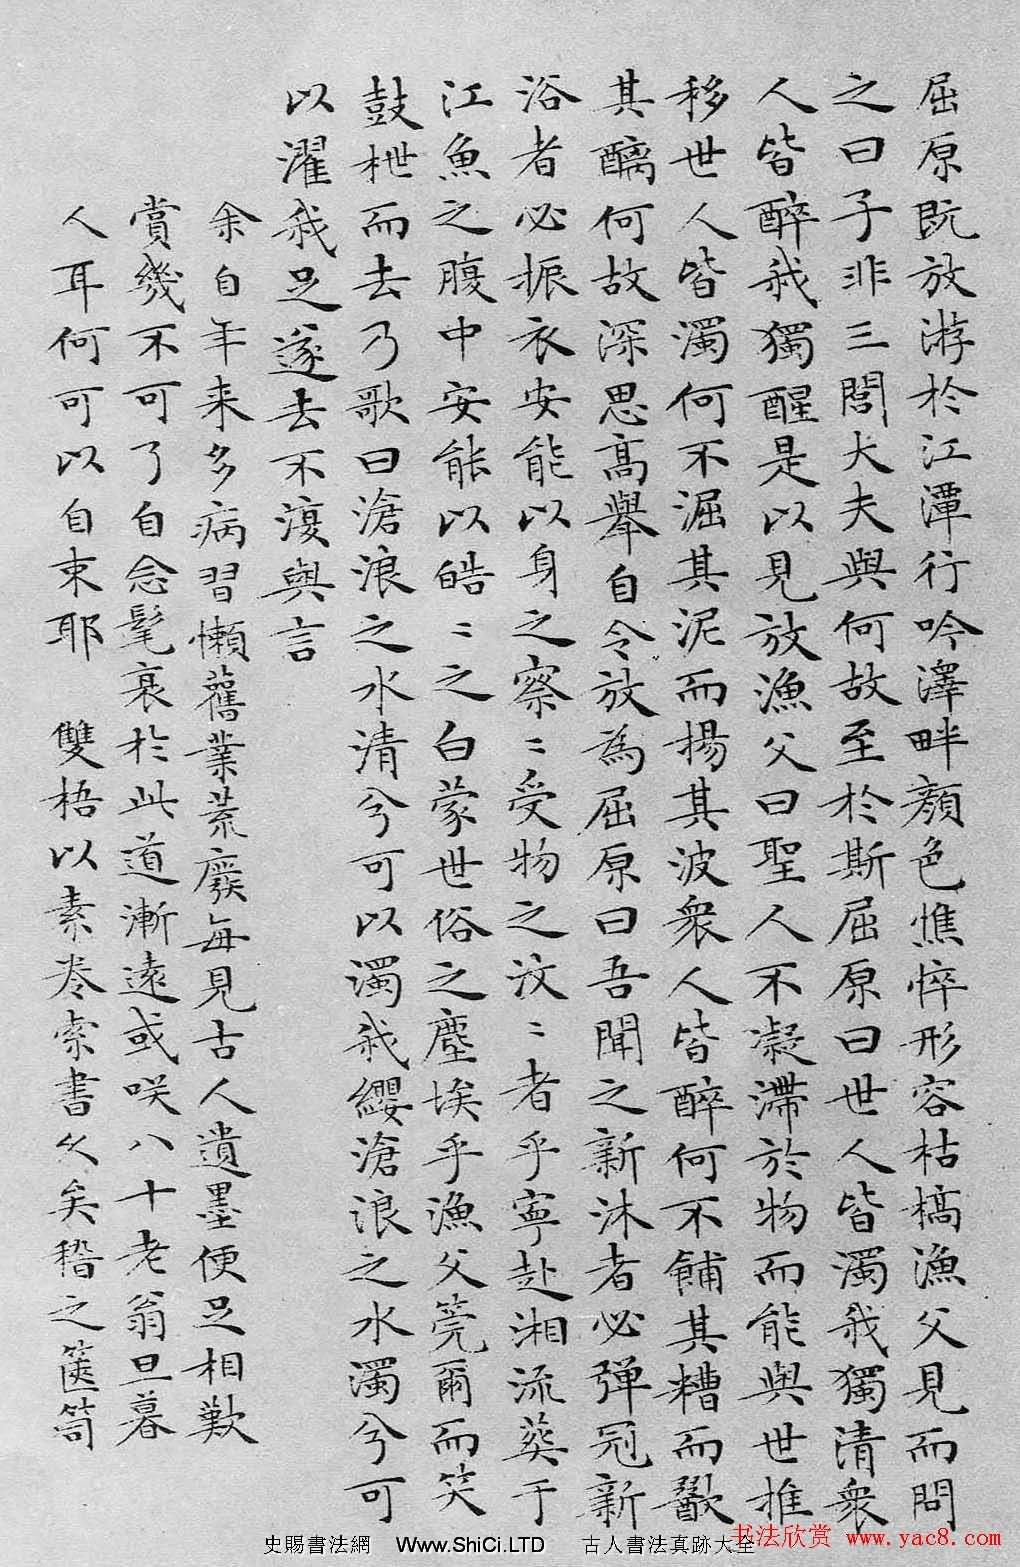 屈原既放游於江潭行吟澤畔顏色憔悴形容枯槁漁父見而問
之曰子非三閭大夫與何故至於斯屈原曰世人皆濁我獨清衆
人皆醉我獨醒是以見放漁父曰聖人不凝滯於物而能與世推
移世人皆濁何不淈其泥而揚其波衆人皆醉何不餔其糟而歠
其醨何故深思高舉自令放為屈原曰吾聞之新沐者必彈冠新
浴者必振衣安能以身之察〻受物之汶〻者乎寧赴湘流葬于
江魚之腹中安能以皓〻之白蒙世俗之塵埃乎漁父莞爾而笑
鼓枻而去乃歌曰滄浪之水清兮可以濯我纓滄浪之水濁兮可
以濯我足遂去不復與言
余自年来多病習懶舊業荒廢每見古人遺墨便足相歎
賞幾不可了自念髦衰於此道漸遠或咲八十老翁旦暮
人耳何可以自束耶 雙梧以素卷索書久矣稽之篋笥
史賜書法網 Www.ShiCi.LTD 古人書法真跡大全
书法欣赏 www.yac8.com